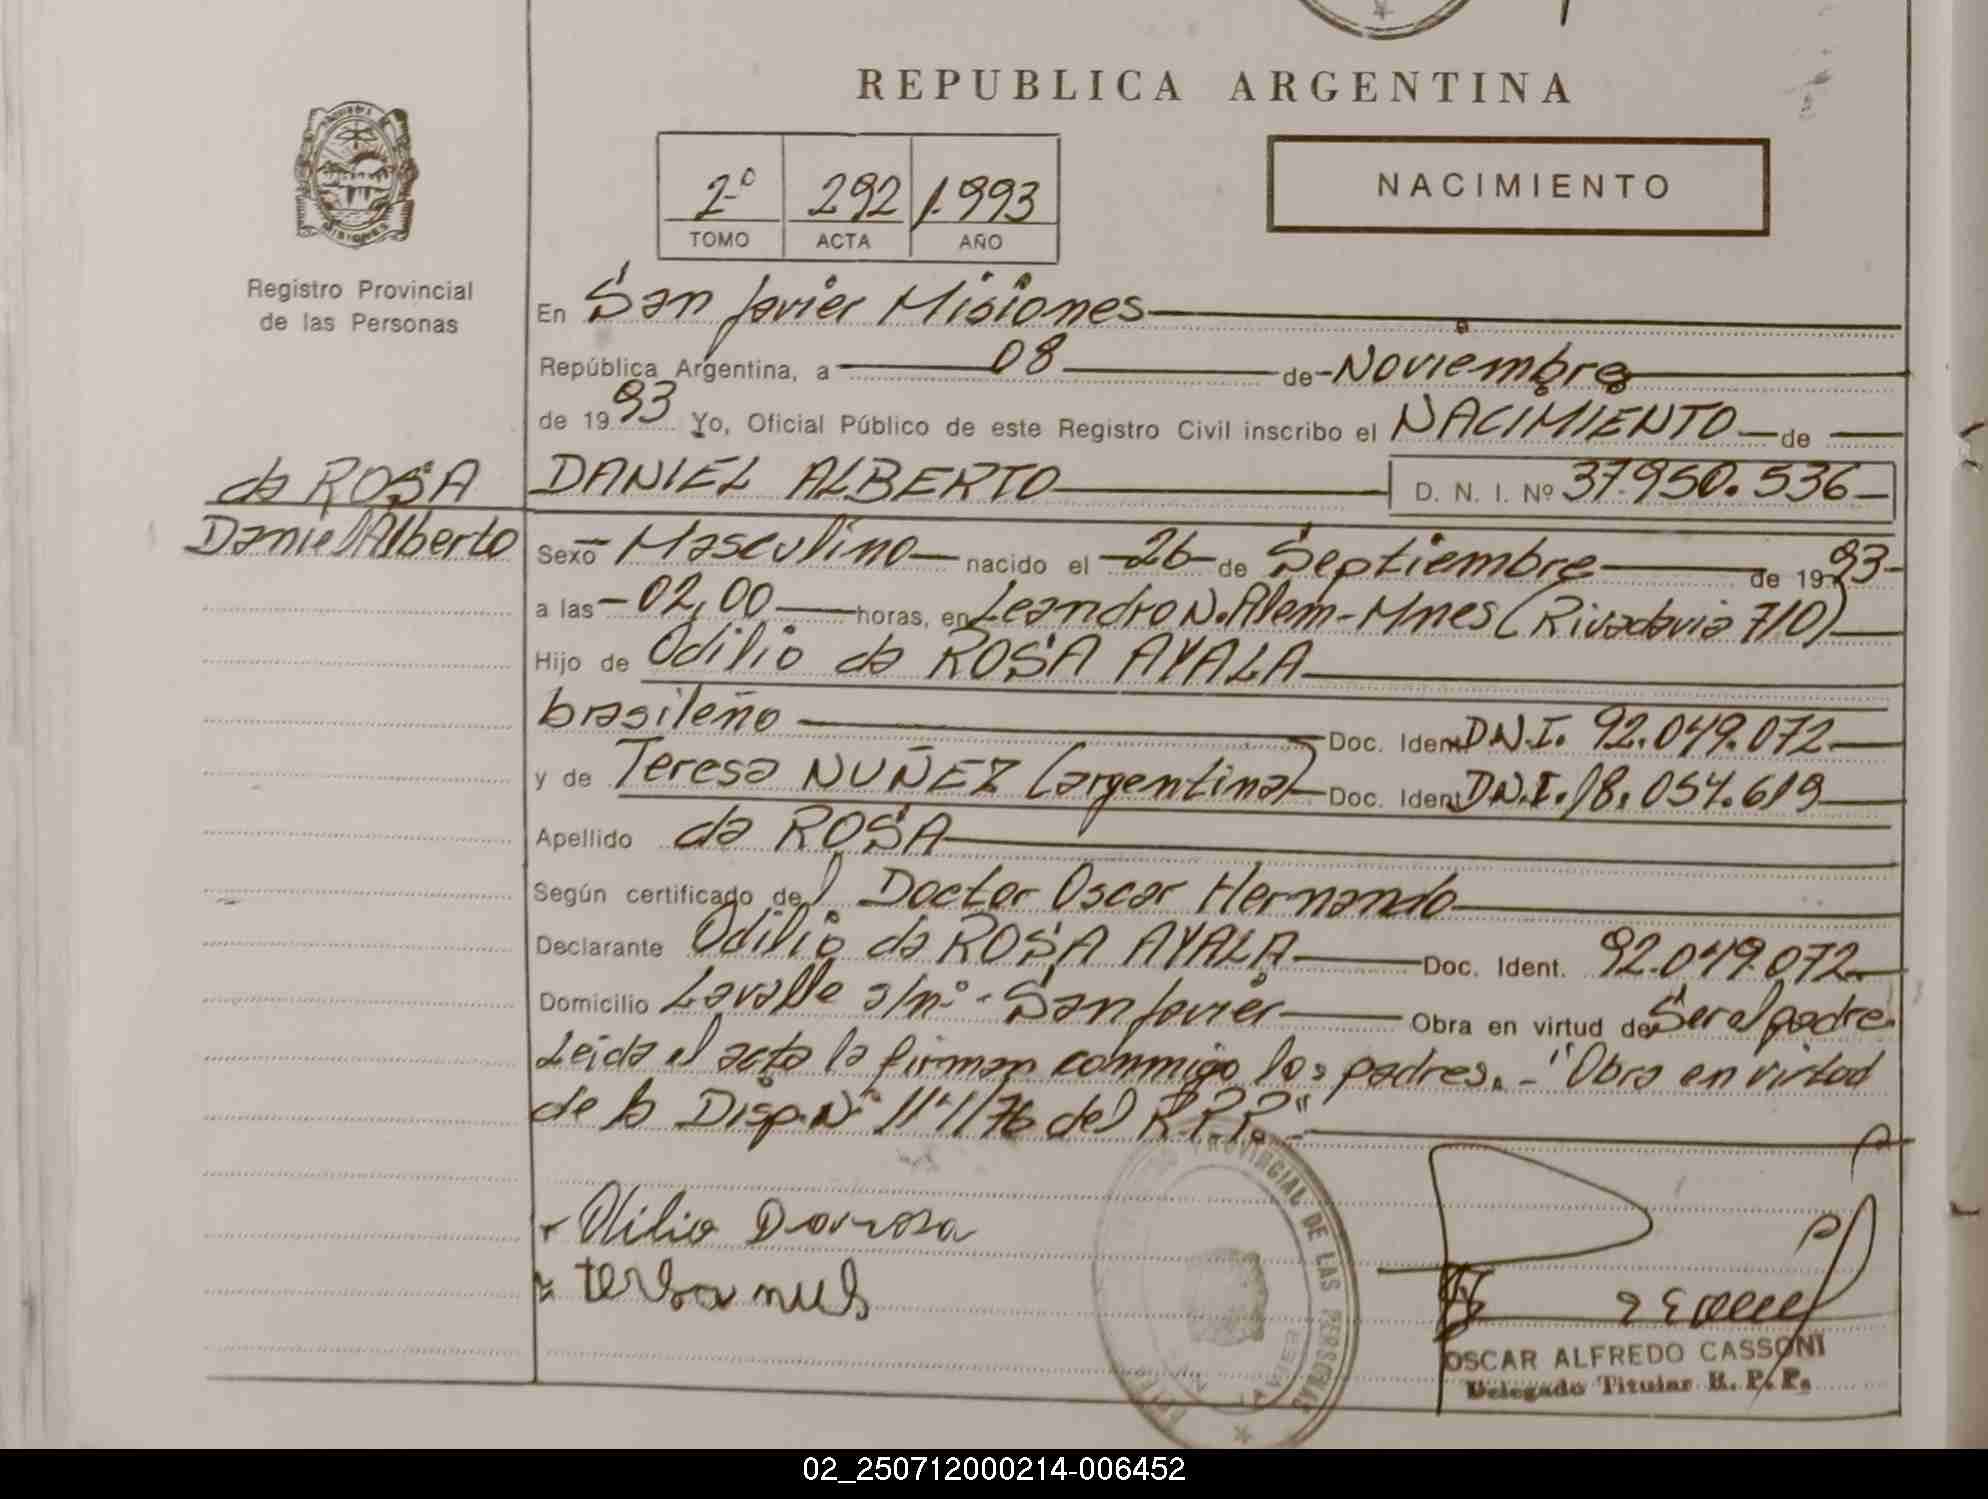 REPUBLICA ARGENTINA
2º 292 1.993
TOMO ACTA AÑO
NACIMIENTO
MISIONES
Registro Provincial
de las Personas
En San Javier Misiones
República Argentina, a 08 de Noviembre
de 1993 Yo, Oficial Público de este Registro Civil inscribo el NACIMIENTO de
da ROSA
Daniel Alberto
DANIEL ALBERTO D. N. I. Nº 37.950.536
Sexo Masculino nacido el 26 de Septiembre de 1993
a las 02,00 horas, en Leandro N. Alem-Mnes (Rivadavia 710)
Hijo de Odilio da ROSA AYALA
brasileño Doc. Ident. D.N.I. 92.049.072
y de Teresa NUÑEZ (argentina) Doc. Ident. D.N.I. 18.054.619
Apellido da ROSA
Según certificado del Doctor Oscar Hernando
Declarante Odilio da ROSA AYALA Doc. Ident. 92.049.072
Domicilio Lavalle s/nº - San Javier Obra en virtud de Ser el padre.
Leida el acta la firman conmigo los padres. - "Obra en virtud
de la Disp. Nº 111/76 del R.P.P."
PROVINCIAL DE LAS PERSONAS
JAVIER
Odilio Darosa
OSCAR ALFREDO CASSONI
Delegado Titular R. P. P.
02_250712000214-006452